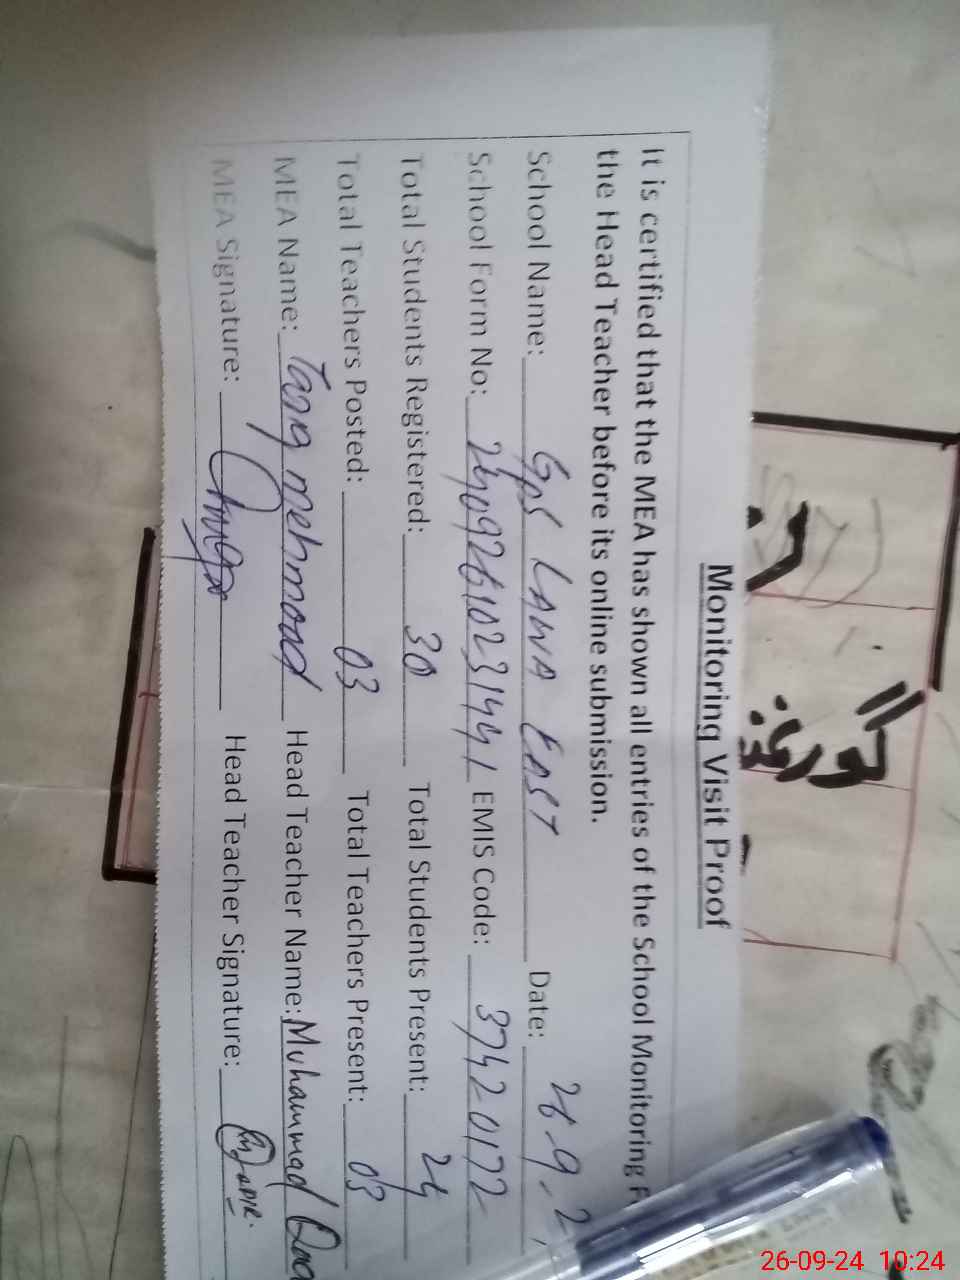 Monitoring Visit Proof
It is certified that the MEA has shown all entries of the School Monitoring F
the Head Teacher before its online submission.
School Name: GPS LAWA EAST Date: 26-9-2
School Form No: 24092610231441 EMIS Code: 37420172
Total Students Registered: 30 Total Students Present: 24
Total Teachers Posted: 03 Total Teachers Present: 03
MEA Name: Tariq mehmood Head Teacher Name: Muhammad
MEA Signature: Head Teacher Signature:
26-09-24 10:24